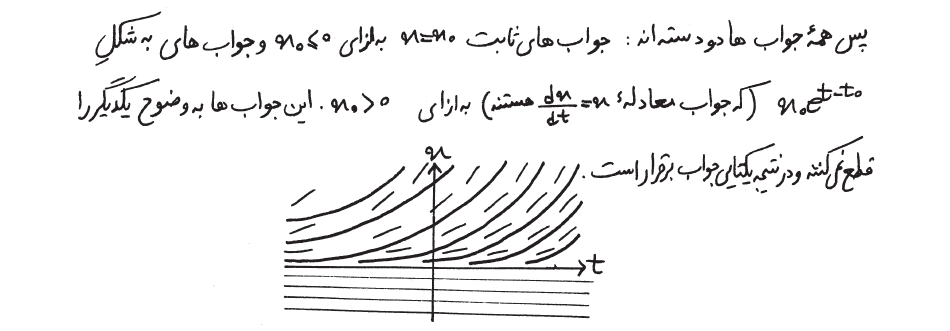 پس همهٔ جواب ها دو دسته اند : جواب های ثابت x=x₀ به ازای x₀≤0 و جواب های به شکل
x₀e^{t-t₀} (که جواب معادلهٔ dx/dt = x هستند) به ازای x₀>0 . این جواب ها به وضوح یکدیگر را
قطع نمی کنند و در نتیجه یکتایی جواب برقرار است .
x
t